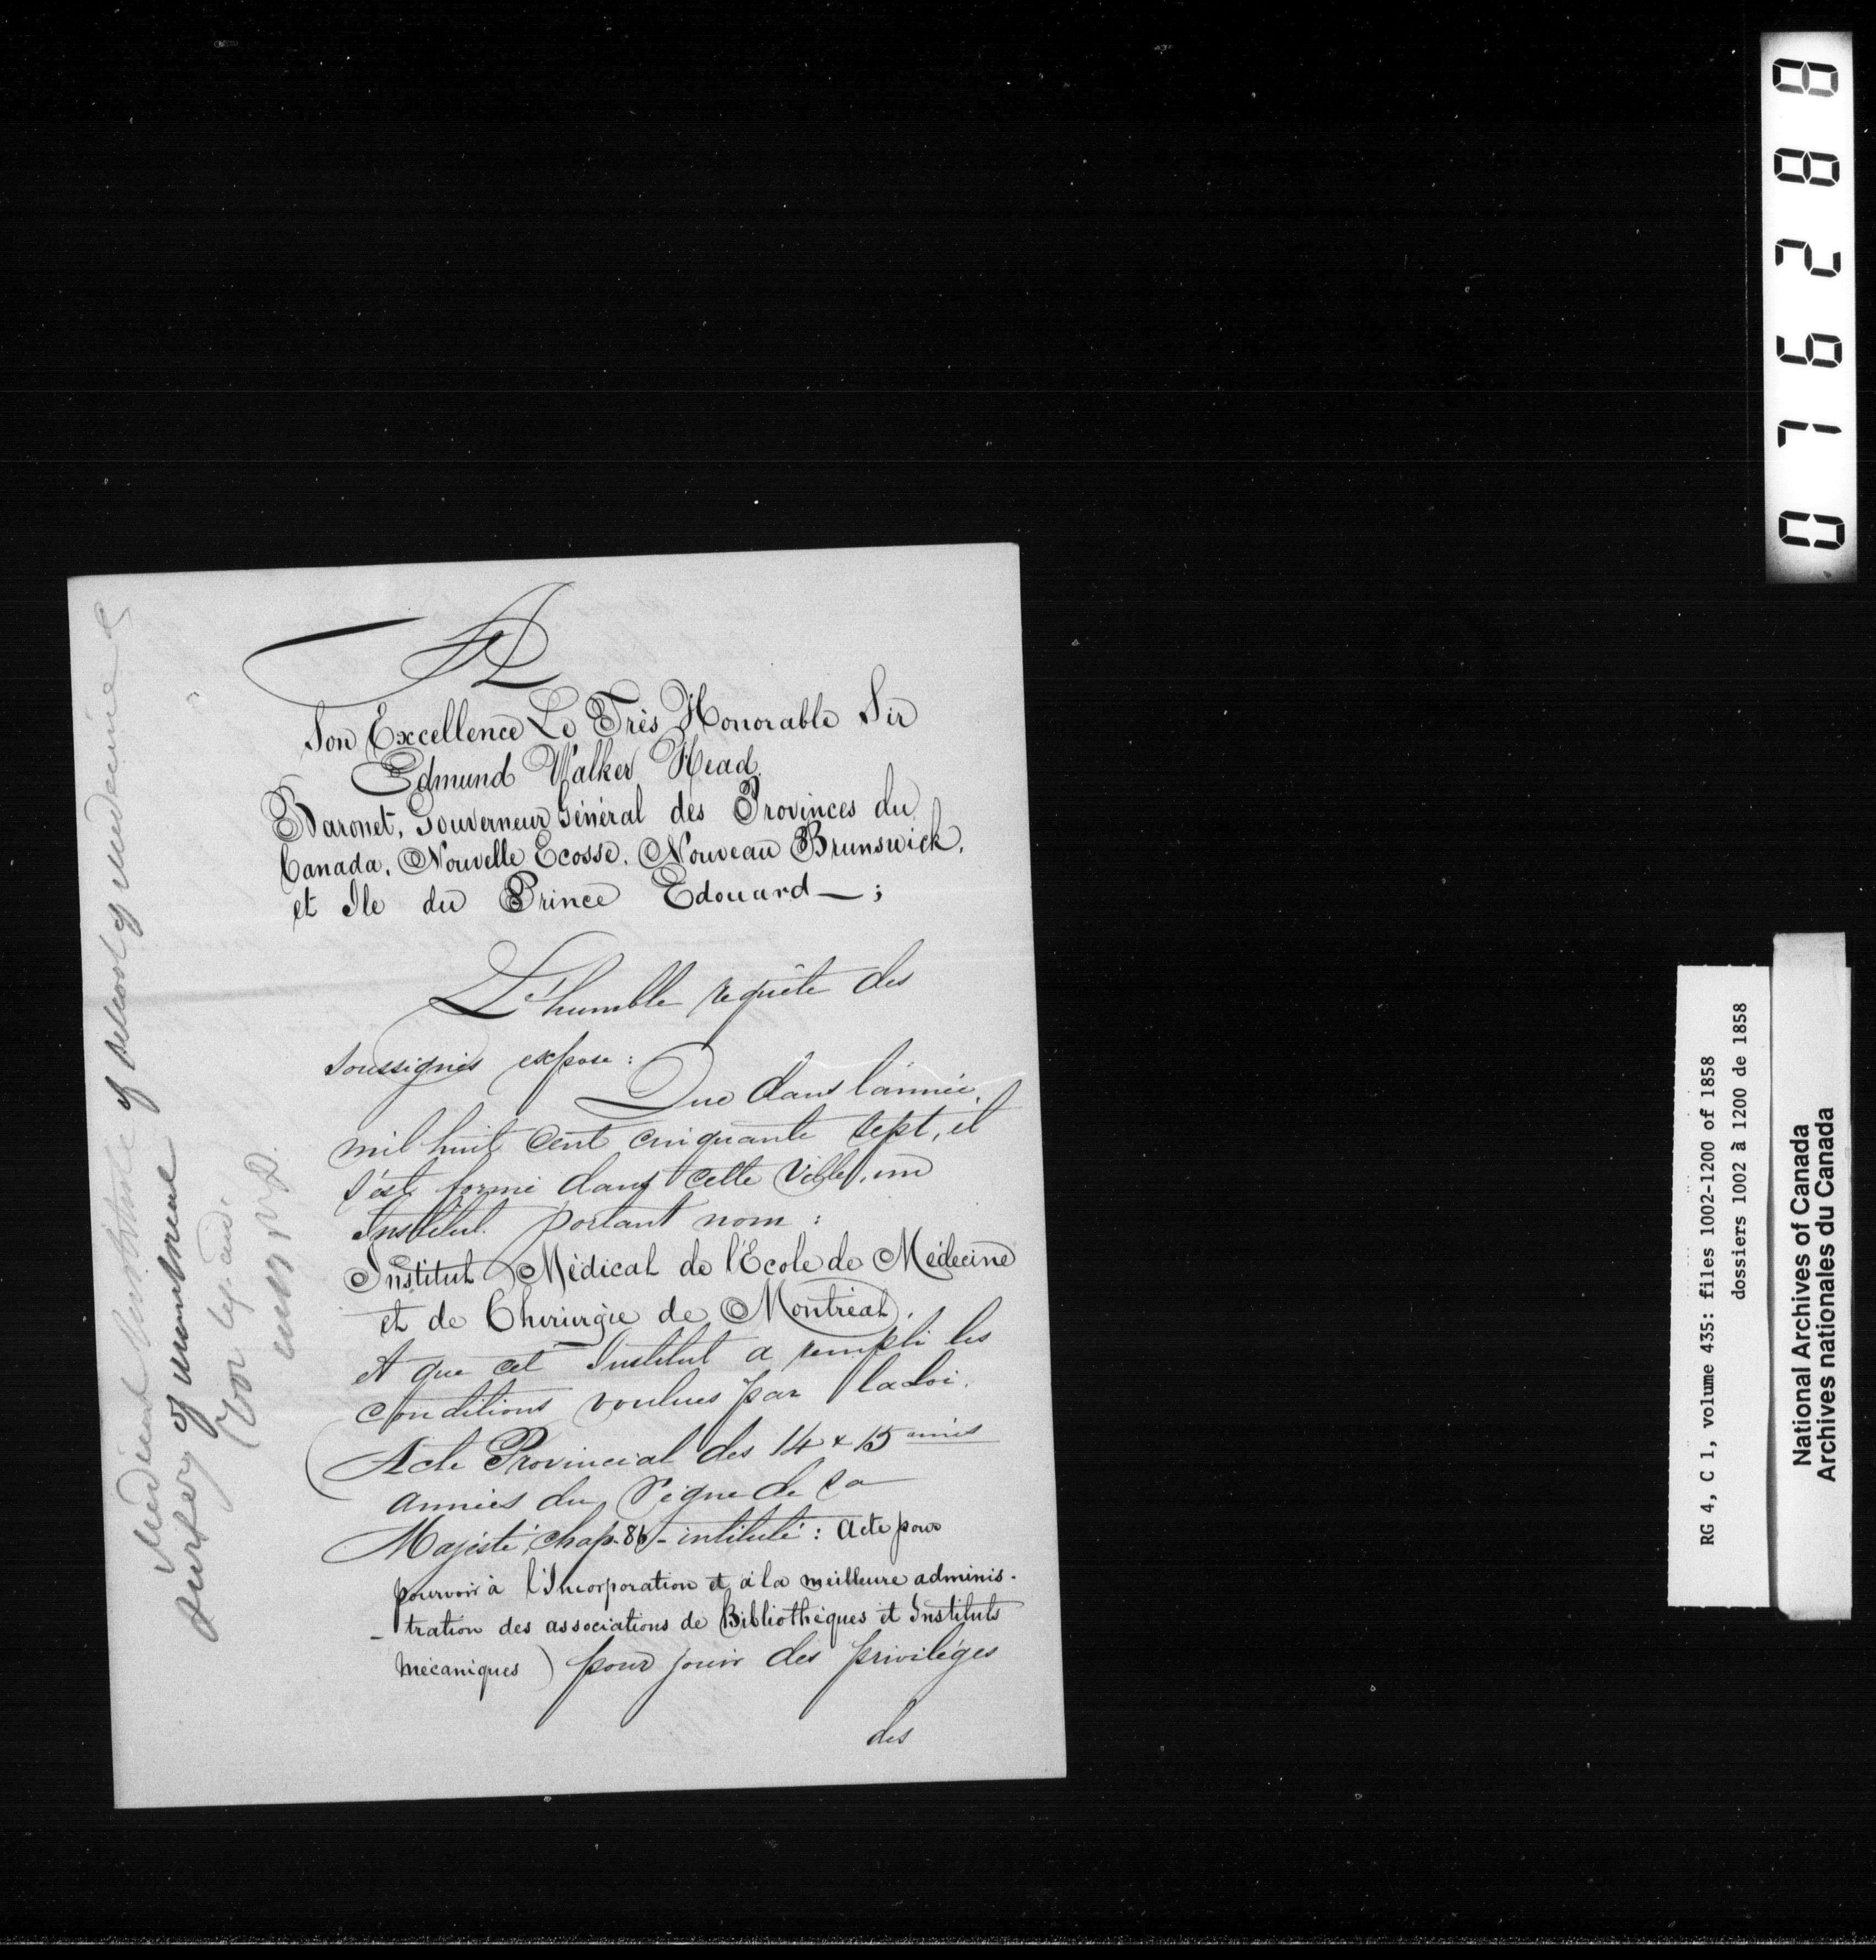 A
Son Excellence Le Très Honorable Sir
Edmund Walker Head.
Baronet, Gouverneur Général des Provinces du
Canada, Nouvelle Ecosse, Nouveau Brunswick,
et Ile du Prince Edouard — ;
L'humble requête des
soussignés expose :
Que dans l'année
mil huit cent cinquante sept, il
s'est formé dans cette Ville, un
Institut portant nom :
Institut Médical de l'Ecole de Médecine
et de Chirurgie de Montréal,
et que cet Institut a rempli les
conditions voulues par la Loi.
(Acte Provincial des 14 & 15 èmes
années du Règne de Sa
Majesté, chap. 86 - intitulé : Acte pour
pourvoir à l'Incorporation et à la meilleure adminis-
-tration des associations de Bibliothèques et Instituts
Mécaniques) pour jouir des privilèges
des
Medical Institute of School of Medicine &
Surgery of Montreal
076288
RG 4, C 1, volume 435: files 1002-1200 of 1858
dossiers 1002 à 1200 de 1858
National Archives of Canada
Archives nationales du Canada